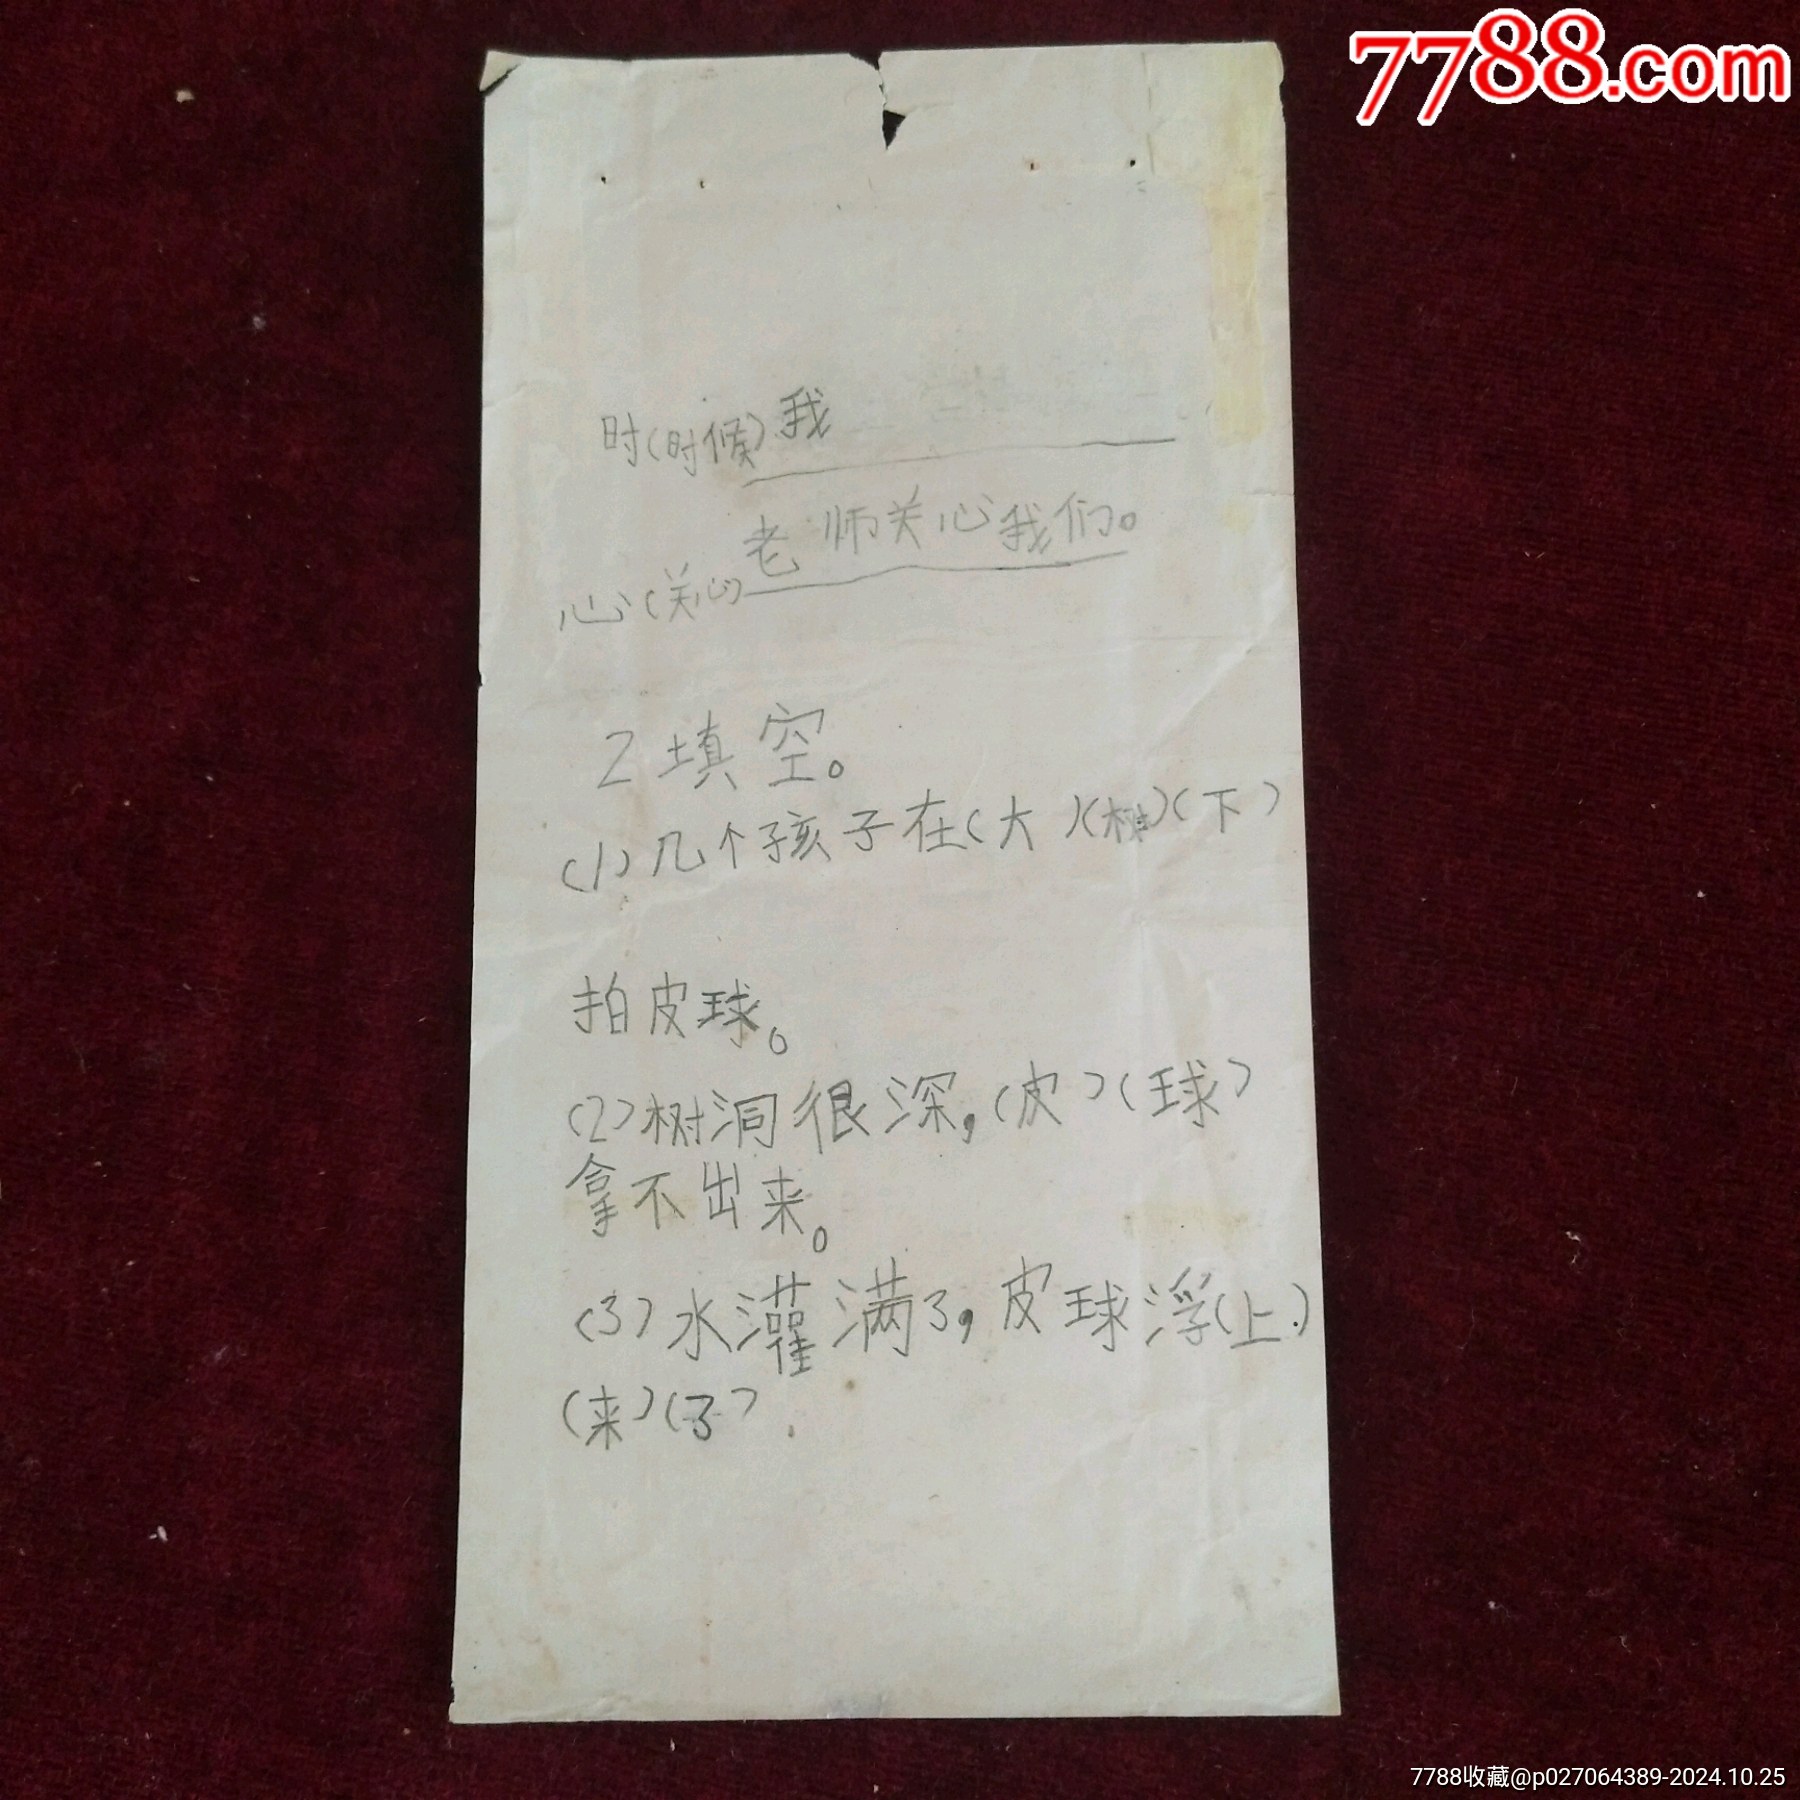 7788.com
时(时候)我
老师关心我们。
心(关心)
2填空。
(1)几个孩子在(大)(树)(下)
拍皮球。
(2)树洞很深,(皮)(球)
拿不出来。
(3)水灌满了,皮球浮(上)
(来)(了).
7788收藏@p027064389-2024.10.25